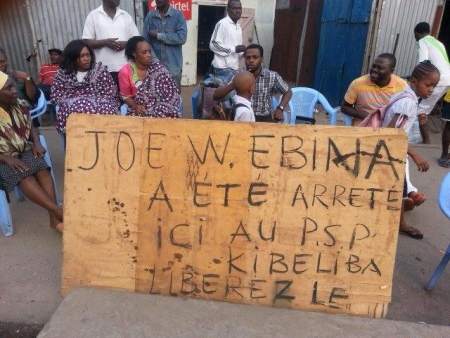 airtel
JOE W. EBIMA
A ÉTÉ ARRETE
ICI AU P.S.P
KIBELIBA
LIBEREZ LE